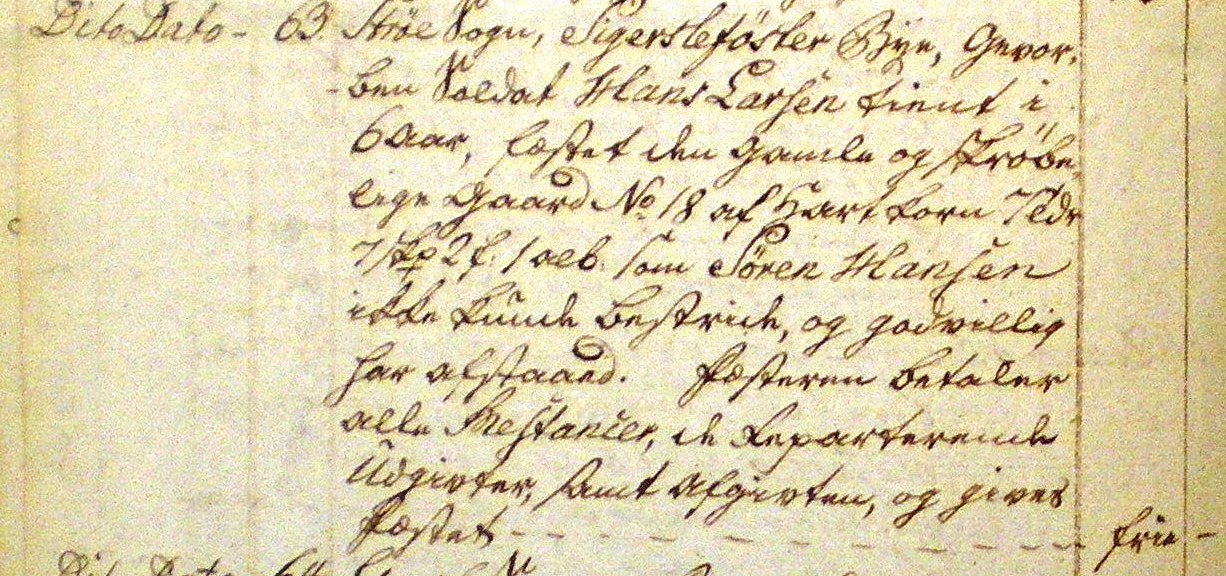 Dito Dato - 63. Strøe Sogn, Sigersleføster Bye, Gevor-
-ben Soldat Hans Larsen tient i
6 Aar, fæstet den gamle og skrøbe-
lige Gaard No 18 af Hartkorn 7 tdr
7 skp 2 f: 1 alb: som Sören Hansen
ikke kunde bestride, og godvillig
har afstaaed. Fæsteren betaler
alle Restancer, de Reparterende
Udgivter, samt Afgivten, og gives
Fæstet - - - - - - - - - - frie -
Dito Dato 64